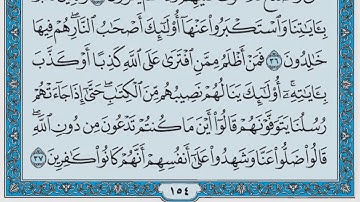 بِـَٔايَـٰتِنَا وَٱسْتَكْبَرُوا۟ عَنْهَآ أُو۟لَـٰٓئِكَ أَصْحَـٰبُ ٱلنَّارِ ۖ هُمْ فِيهَا
خَـٰلِدُونَ ٣٦ فَمَنْ أَظْلَمُ مِمَّنِ ٱفْتَرَىٰ عَلَى ٱللَّهِ كَذِبًا أَوْ كَذَّبَ
بِـَٔايَـٰتِهِۦٓ ۚ أُو۟لَـٰٓئِكَ يَنَالُهُمْ نَصِيبُهُم مِّنَ ٱلْكِتَـٰبِ ۖ حَتَّىٰٓ إِذَا جَآءَتْهُمْ
رُسُلُنَا يَتَوَفَّوْنَهُمْ قَالُوٓا۟ أَيْنَ مَا كُنتُمْ تَدْعُونَ مِن دُونِ ٱللَّهِ ۖ
قَالُوا۟ ضَلُّوا۟ عَنَّا وَشَهِدُوا۟ عَلَىٰٓ أَنفُسِهِمْ أَنَّهُمْ كَانُوا۟ كَـٰفِرِينَ ٣٧
١٥٤